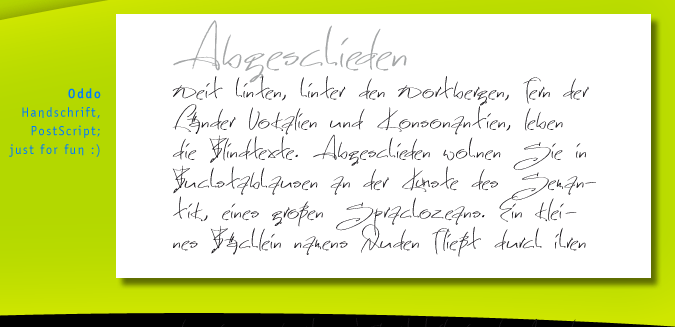 Oddo
Handschrift,
PostScript;
just for fun :)
Abgeschieden
Weit hinten, hinter den Wortbergen, fern der
Länder Vokalien und Konsonantien, leben
die Blindtexte. Abgeschieden wohnen Sie in
Buchstabhausen an der Küste des Seman-
tik, eines großen Sprachozeans. Ein klei-
nes Bächlein namens Duden fließt durch ihren